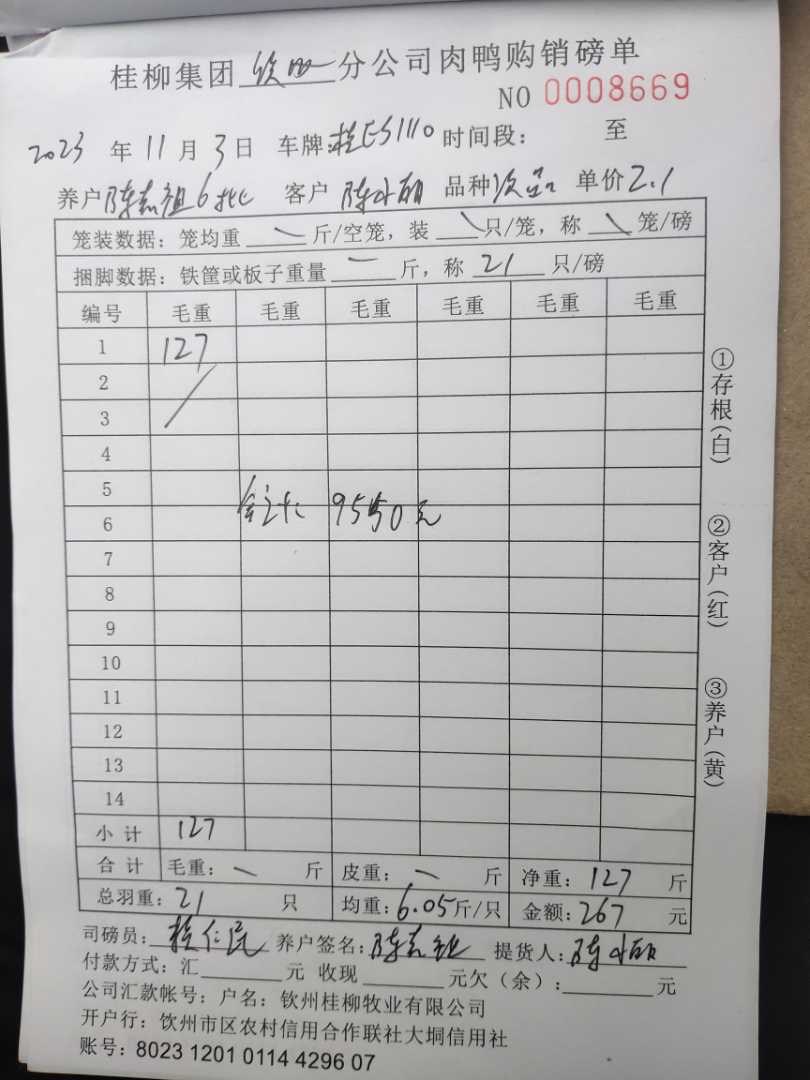 桂柳集团 钦州 分公司肉鸭购销磅单
NO 0008669
2023 年 11 月 3 日 车牌:桂ES1110 时间段: 至
养户 陈志祖6批 客户 陈小丽 品种 次品 单价 2.1
笼装数据：笼均重 斤/空笼，装 只/笼，称 笼/磅
捆脚数据：铁筐或板子重量 斤，称 21 只/磅
编号 毛重 毛重 毛重 毛重 毛重 毛重
1 127
2
3
4
5
6
合计 9550元
7
8
9
10
11
12
13
14
小计 127
合计 毛重： 斤 皮重： 斤 净重：127 斤
总羽重：21 只 均重：6.05斤/只 金额：267 元
司磅员： 养户签名：陈志 提货人：陈小丽
付款方式：汇 元 收现 元欠（余）： 元
公司汇款帐号：户名：钦州桂柳牧业有限公司
开户行：钦州市区农村信用合作联社大垌信用社
账号：8023 1201 0114 4296 07
①存根(白)
②客户(红)
③养户(黄)